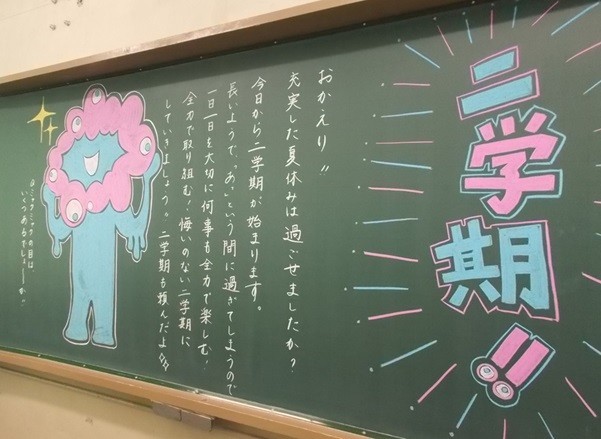 二学期!!
おかえり〃
充実した夏休みは過ごせましたか?
今日から二学期が始まります。
長いようで、あっという間に過ぎてしまうので
一日一日を大切に何事も全力で楽しむ!
全力で取り組む!悔いのない二学期に
していきましょう。二学期も頼んだよ
ミャクミャクの目は、
いくつあるでしょーか?